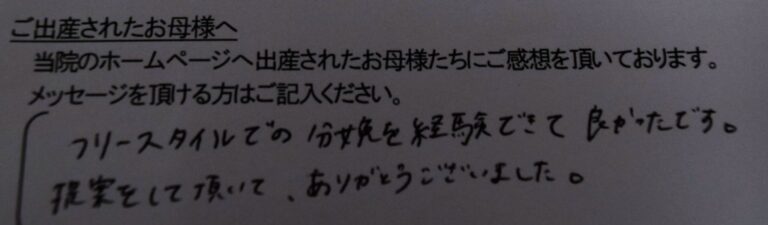 ご出産されたお母様へ
当院のホームページへ出産されたお母様たちにご感想を頂いております。
メッセージを頂ける方はご記入ください。
フリースタイルでの分娩を経験できて良かったです。
提案をして頂いて、ありがとうございました。